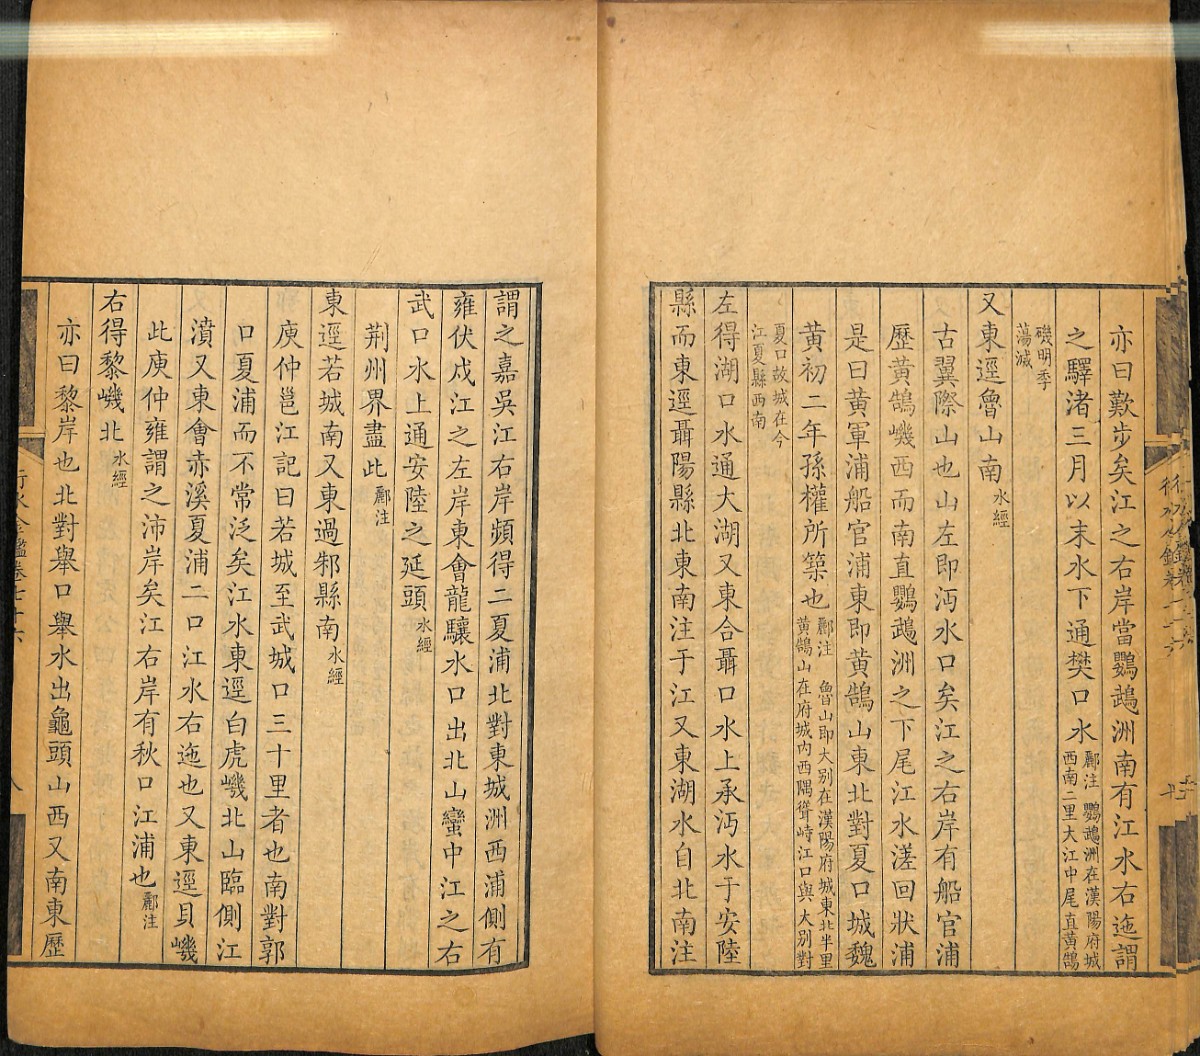 亦曰歎步矣江之右岸當鸚鵡洲南有江水右迤謂
之驛渚三月以末水下通樊口水酈注 鸚鵡洲在漢陽府城西南二里大江中尾直黃鵠
磯明季蕩滅
又東逕魯山南水經
古翼際山也山左即沔水口矣江之右岸有船官浦
歷黃鵠磯西而南直鸚鵡洲之下尾江水溠回狀浦
是曰黃軍浦船官浦東即黃鵠山東北對夏口城魏
黃初二年孫權所築也酈注 魯山即大别在漢陽府城東北半里黃鵠山在府城內西隅聳峙江口與大别對
夏口故城在今江夏縣西南
左得湖口水通大湖又東合灄口水上承沔水于安陸
縣而東逕灄陽縣北東南注于江又東湖水自北南注
謂之嘉吳江右岸頻得二夏浦北對東城洲西浦側有
雍伏戍江之左岸東會龍驤水口出北山蠻中江之右
武口水上通安陸之延頭水經
荆州界盡此酈注
東逕若城南又東過邾縣南水經
庾仲邕江記曰若城至武城口三十里者也南對郭
口夏浦而不常泛矣江水東逕白虎磯北山臨側江
濆又東會赤溪夏浦二口江水右迤也又東逕貝磯
此庾仲雍謂之沛岸矣江右岸有秋口江浦也酈注
右得黎磯北水經
亦曰黎岸也北對舉口舉水出龜頭山西又南東歷
行水金鑑卷七十六